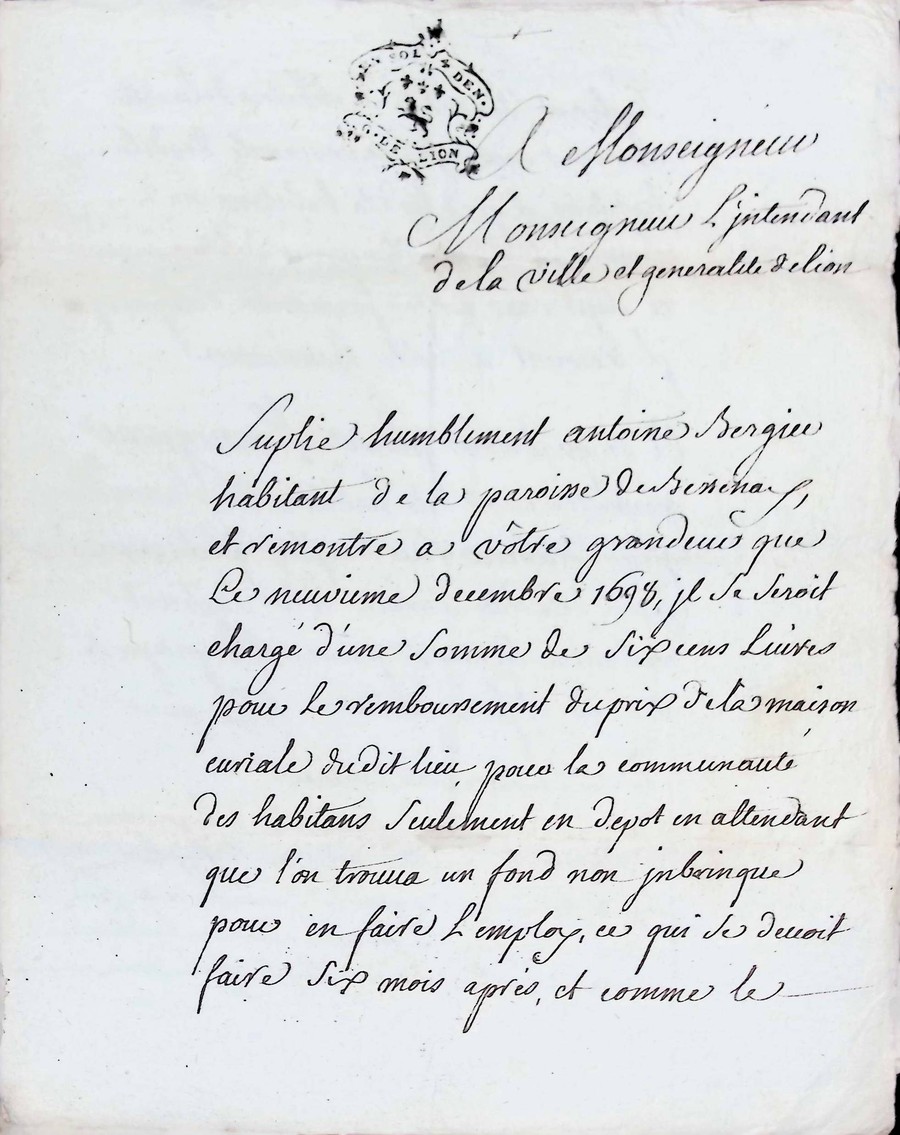 SOL 4 DEN.
G. DE LION
A Monseigneur
Monseigneur L'jntendant
de la ville et generalité de lion
Suplie humblement antoine Bergier
habitant de la paroisse de Bessenay,
et remontre a vôtre grandeur que
Le neuvieme decembre 1698, jl se seroit
chargé d'une somme de six cens Livres
pour Le remboursement du prix de la maison
curiale dudit lieu, pour la communauté
des habitans seulement en depot en attendant
que l'on trouva un fond non jnbrinque
pour en faire L'employ, ce qui se devoit
faire six mois aprés, et comme le